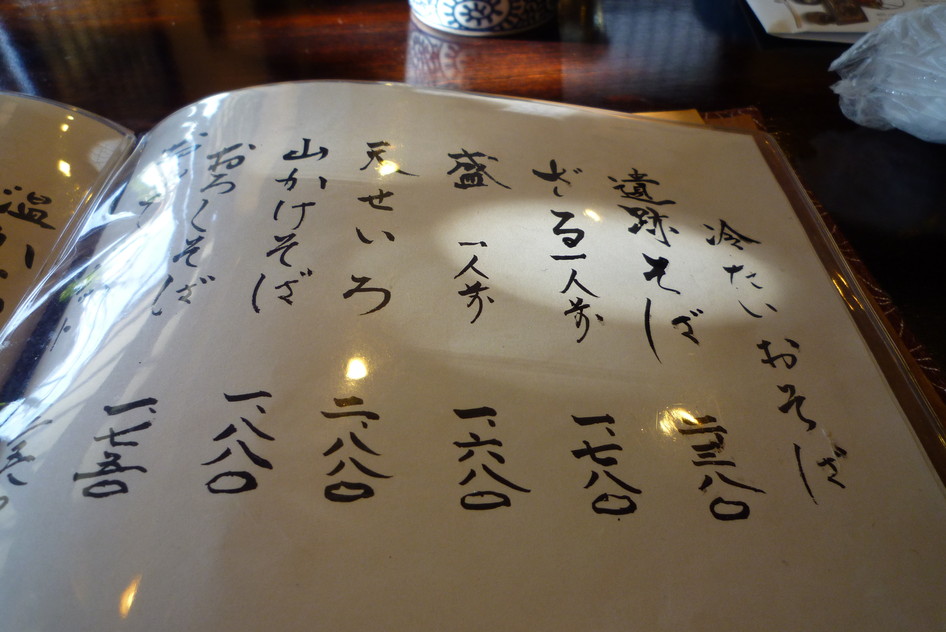 冷たいおそば
遺跡そば 二、三八〇
ざる一人前 一、七八〇
盛 一人前 一、六八〇
天せいろ 二、八八〇
山かけそば 一、八八〇
おろしそば 一、七五〇
温